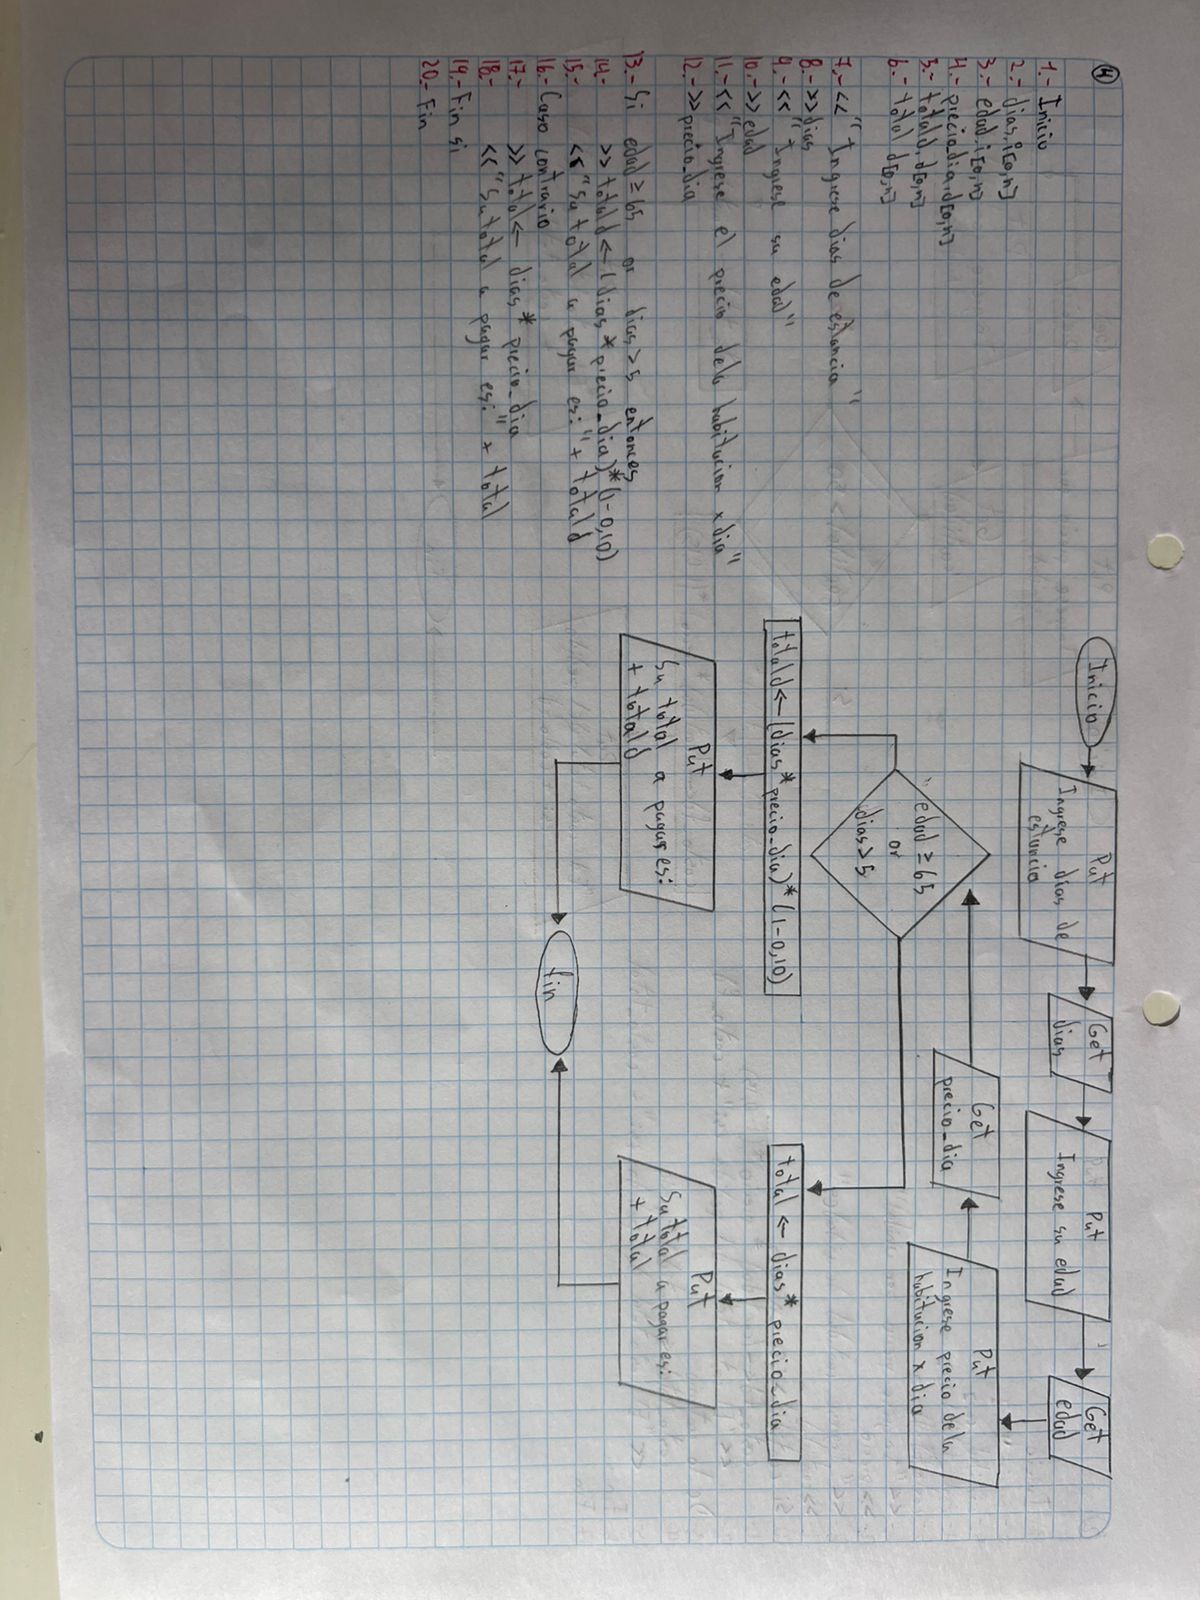 4
1.- Inicio
2.- dias, i[0,n]
3.- edad, i[0,n]
4.- precio_dia, d[0,n]
5.- totald, d[0,n]
6.- total d[0,n]
7.- << "Ingrese dias de estancia"
8.- >> dias
9.- << "Ingrese su edad"
10.- >> edad
11.- << "Ingrese el precio dela habitacion x dia"
12.- >> precio_dia
13.- Si edad ≥ 65 or dias > 5 entonces
14.- >> totald ← (dias * precio_dia) * (1-0,10)
15.- << "Su total a pagar es: " + totald
16.- Caso contrario
17.- >> total ← dias * precio_dia
18.- << "Su total a pagar es: " + total
19.- Fin si
20.- Fin
Inicio
Put
Ingrese dias de
estancia
Get
dias
Put
Ingrese su edad
Get
edad
Put
Ingrese precio dela
habitacion x dia
Get
precio_dia
edad ≥ 65
or
dias > 5
totald ← (dias * precio_dia) * (1-0,10)
Put
Su total a pagar es:
+ totald
total ← dias * precio_dia
Put
Su total a pagar es:
+ total
fin